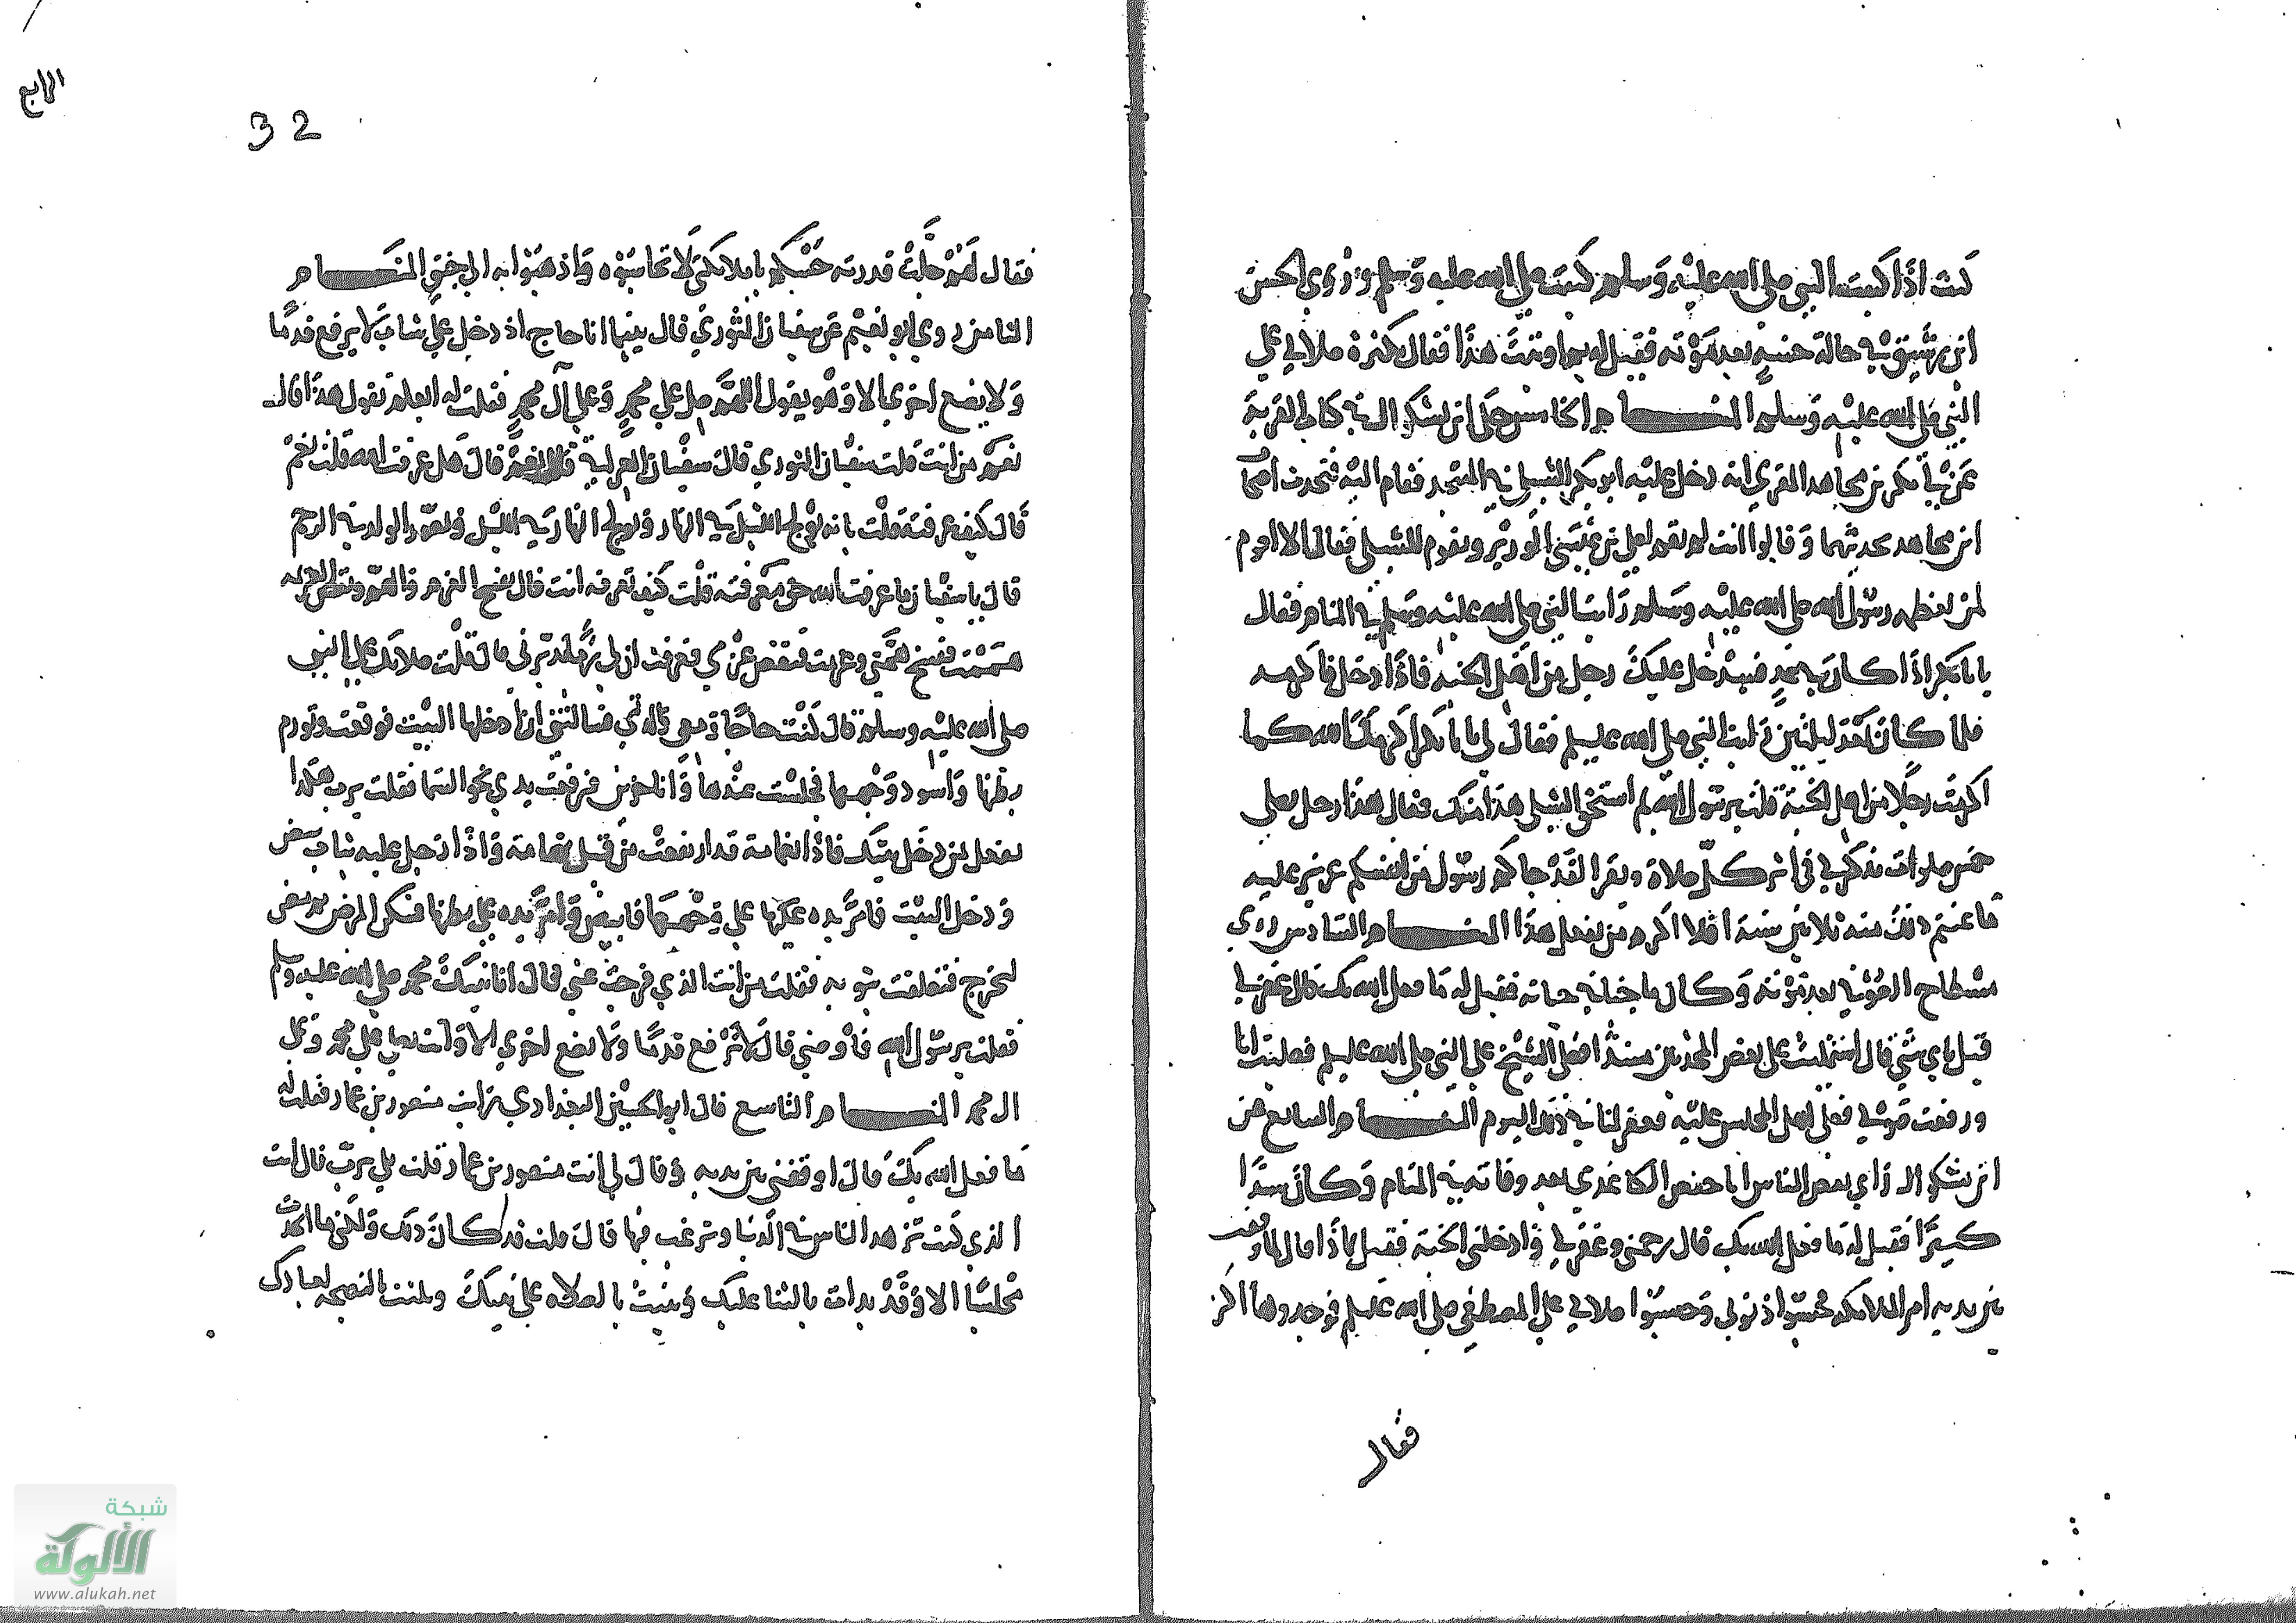 كنت اذا كتبت النبي صلى الله عليه وسلم كتبت صلى الله عليه وسلم وروي الحسن
ابن رشيق في حالة حسنة بعد موته فقيل له بم اوتيت هذا فقال بكثرة صلاتي على
النبي صلى الله عليه وسلم المنام الخامس حكى ابن بشكوال في كتاب القربة
عن ابي بكر بن مجاهد المقري انه دخل عليه ابو بكر الشبلي في المسجد فقام اليه فتحدث اصحاب
ابن مجاهد بحديثهما وقالوا انت لم تقم لعلي بن عيسى الوزير وتقوم للشبلي فقال الا اقوم
لمن يعظمه رسول الله صلى الله عليه وسلم رايت النبي صلى الله عليه وسلم في المنام فقال
يا ابا بكر اذا كان في غد فسيدخل عليك رجل من اهل الجنة فاذا دخل فاكرمه
فلما كان بعد ليلتين رايت النبي صلى الله عليه وسلم فقال لي يا ابا بكر اكرمك الله كما
اكرمت رجلا من اهل الجنة قلت يرسول الله بم استحق الشبلي هذا منك فقال هذا رجل يصلي
خمس صلوات يذكرني في اثر كل صلاة ويقرا لقد جاكم رسول من انفسكم عزيز عليه
ما عنتم ذلك منذ ثلاثين سنة افلا اكرم من يفعل هذا المنام السادس روي
مسطاح الصوفي بعد موته وكان ماجنا في حياته فقيل له ما فعل الله بك قال غفر لي
قيل باي شي قال استمليت على بعض المحدثين مسندا فصلى الشيخ على النبي صلى الله عليه وسلم فصليت انا
ورفعت صوتي فصلى اهل المجلس عليه فغفر لنا في ذلك اليوم المنام السابع عن
ابن بشكوال راي بعض الناس ابا حفص الكاغدي بعد وفاته في المنام وكان سيدا
كبيرا فقيل له ما فعل الله بك قال رحمني وغفر لي وادخلني الجنة فقيل بماذا قال لما وقفت
بين يديه امر الملائكة فحسبوا ذنوبي وحسبوا صلاتي على المصطفى صلى الله عليه وسلم فوجدوها اكثر
فقال
الرابع
32
فقال لهم جلت قدرته حسبكم يا ملائكتي لا تحاسبوه واذهبوا به الى جنتي المنام
الثامن روي ابو نعيم عن سفيان الثوري قال بينما انا حاج اذ دخل علي شاب لا يرفع قدما
ولا يضع اخرى الا وهو يقول اللهم صل على محمد وعلى آل محمد فقلت له ابعلم تقول هذا قال
نعم من انت قلت سفيان الثوري قال سفيان العراقي قلت نعم قال هل عرفت الله قلت نعم
قال كيف عرفته قلت بانه يولج الليل في النهار ويولج النهار في الليل ويصور الولد في الرحم
قال يا سفيان ما عرفت الله حق معرفته قلت كيف تعرفه انت قال بفسخ العزم والهم ونقض العزيمة
هممت ففسخ همتي وعزمت فنقض عزمي فعرفت ان لي ربا يدبرني قال قلت صلاتك على النبي
صلى الله عليه وسلم قال كنت حاجا ومعي والدتي فسالتني ان ادخلها البيت فوقعت وتورم
بطنها واسود وجهها فجلست عندها وانا حزين فرفعت يدي نحو السما فقلت يرب هكذا
تفعل بمن دخل بيتك فاذا غمامة قد ارتفعت من قبل تهامة واذا رجل عليه ثياب بيض
ودخل البيت فامر يده على وجهها فابيض وامر يده على بطنها فسكن المرض ثم مضى
ليخرج فتعلقت بثوبه فقلت من انت الذي فرجت عني قال انا نبيك محمد صلى الله عليه وسلم
فقلت يرسول الله فاوصني قال لا ترفع قدما ولا تضع اخرى الا وانت تصلي على محمد وعلى
ال محمد المنام التاسع قال ابو الحسين البغدادي رايت منصور بن عمار فقلت له
ما فعل الله بك قال اوقفني بين يديه وقال لي انت منصور بن عمار قلت بلى يرب قال انت
الذي كنت تزهد الناس في الدنيا وترغب فيها قال قلت قد كان ذلك ولكن ما اتخذت
مجلسا الا وقد بدات بالثنا عليك وثنيت بالصلاه على نبيك وثلثت بالنصيحه لعبادك
شبكة
الألوكة
www.alukah.net